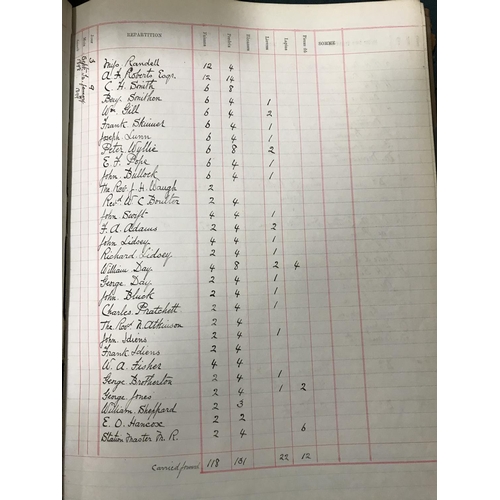 REPARTITION SOMME
Miss Randell 12 4
A. F. Roberts Esqr. 12 14
C. H. Smith 6 8
Benj. Bomford 6 4 1
Wm. Gill 6 4 2
Frank Skinner 6 4 1
Joseph Lunn 6 4 1
Peter Wyllie 6 8 2
E. F. Pope 6 4 1
John Bullock 6 4 1
The Rev. J. H. Waugh 2
Revd. W C Boulter 2 4
John Swift 4 4 1
F. A. Adams 2 4 2
John Lidsey 4 4 1
Richard Lidsey 2 4 1
William Day 4 8 2 4
George Day 2 4 1
John Bluck 2 4 1
Charles Pratchett 2 4 1
The Revd. N. Atkinson 2 4
John Idiens 2 4 1
Frank Idiens 2 4
W. A. Fisher 4 4
George Brotherton 2 4 1
George Jones 2 4 1 2
William Sheppard 2 3
E. O. Hancox 2 2
Station Master M. R. 2 4 6
Carried forward 118 131 22 12